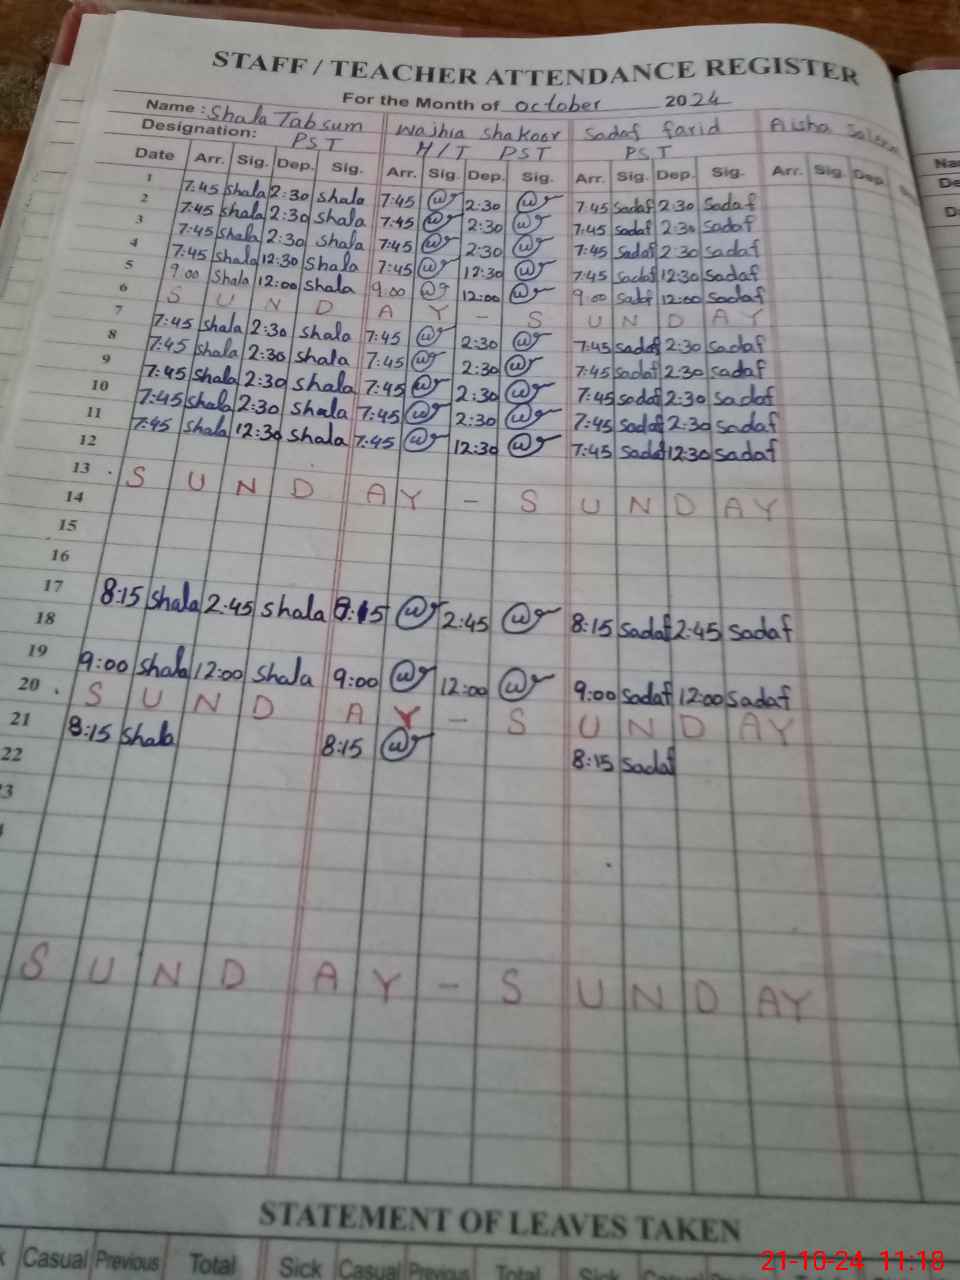 STAFF / TEACHER ATTENDANCE REGISTER
For the Month of october 2024
Name : Shala Tabsum Wajhia Shakoor Sadaf farid Aisha
Designation: PST H/T PST PST
Date Arr. Sig. Dep. Sig. Arr. Sig. Dep. Sig. Arr. Sig. Dep. Sig. Arr. Sig. Dep
1 7:45 Shala 2:30 Shala 7:45 2:30 7:45 Sadaf 2:30 Sadaf
2 7:45 Shala 2:30 Shala 7:45 2:30 7:45 Sadaf 2:30 Sadaf
3 7:45 Shala 2:30 Shala 7:45 2:30 7:45 Sadaf 2:30 Sadaf
4 7:45 Shala 12:30 Shala 7:45 12:30 7:45 Sadaf 12:30 Sadaf
5 9:00 Shala 12:00 Shala 9:00 12:00 9:00 12:00 Sadaf
6 S U N D A Y - S U N D A Y
7 7:45 Shala 2:30 Shala 7:45 2:30 7:45 Sadaf 2:30 Sadaf
8 7:45 Shala 2:30 Shala 7:45 2:30 7:45 Sadaf 2:30 Sadaf
9 7:45 Shala 2:30 Shala 7:45 2:30 7:45 Sadaf 2:30 Sadaf
10 7:45 Shala 2:30 Shala 7:45 2:30 7:45 Sadaf 2:30 Sadaf
11 7:45 Shala 12:30 Shala 7:45 12:30 7:45 Sadaf 12:30 Sadaf
12
13 S U N D A Y - S U N D A Y
14
15
16
17 8:15 Shala 2:45 Shala 8:15 2:45 8:15 Sadaf 2:45 Sadaf
18
19 9:00 Shala 12:00 Shala 9:00 12:00 9:00 Sadaf 12:00 Sadaf
20 S U N D A Y - S U N D A Y
21 8:15 Shala 8:15 8:15 Sadaf
22
S U N D A Y - S U N D A Y
STATEMENT OF LEAVES TAKEN
Casual Previous Total Sick Casual Previous Total Sick
21-10-24 11:18